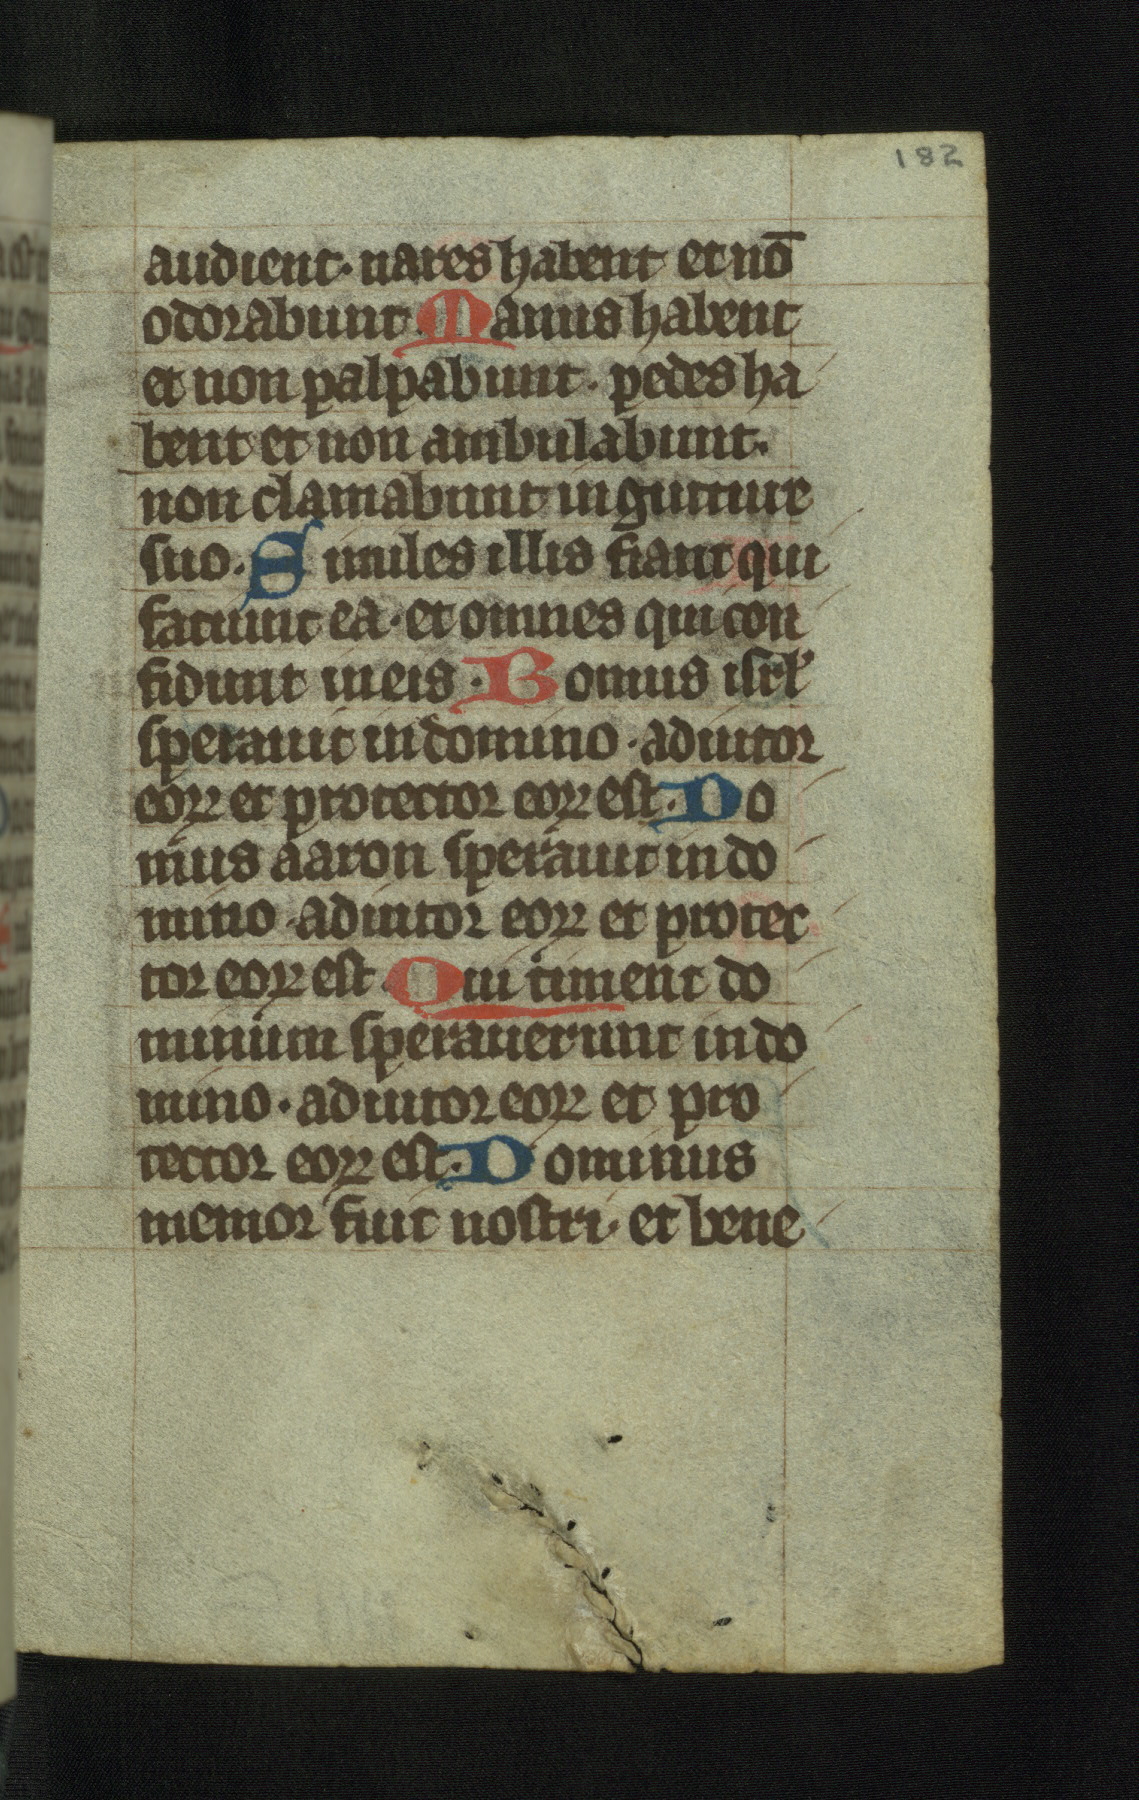 182
audient. nares habent et nō
odorabunt. Manus habent
et non palpabunt. pedes ha
bent et non ambulabunt.
non clamabunt in gutture
suo. Similes illis fiant qui
faciunt ea. et omnes qui con
fidunt in eis. Bomus isrl'
sperauit in domino. adiutor
eoꝝ et protector eoꝝ est. Do
mus aaron sperauit in do
mino. adiutor eoꝝ et protec
tor eoꝝ est. Qui timent do
minum sperauerunt in do
mino. adiutor eoꝝ et pro
tector eoꝝ est. Dominus
memor fuit nostri. et bene